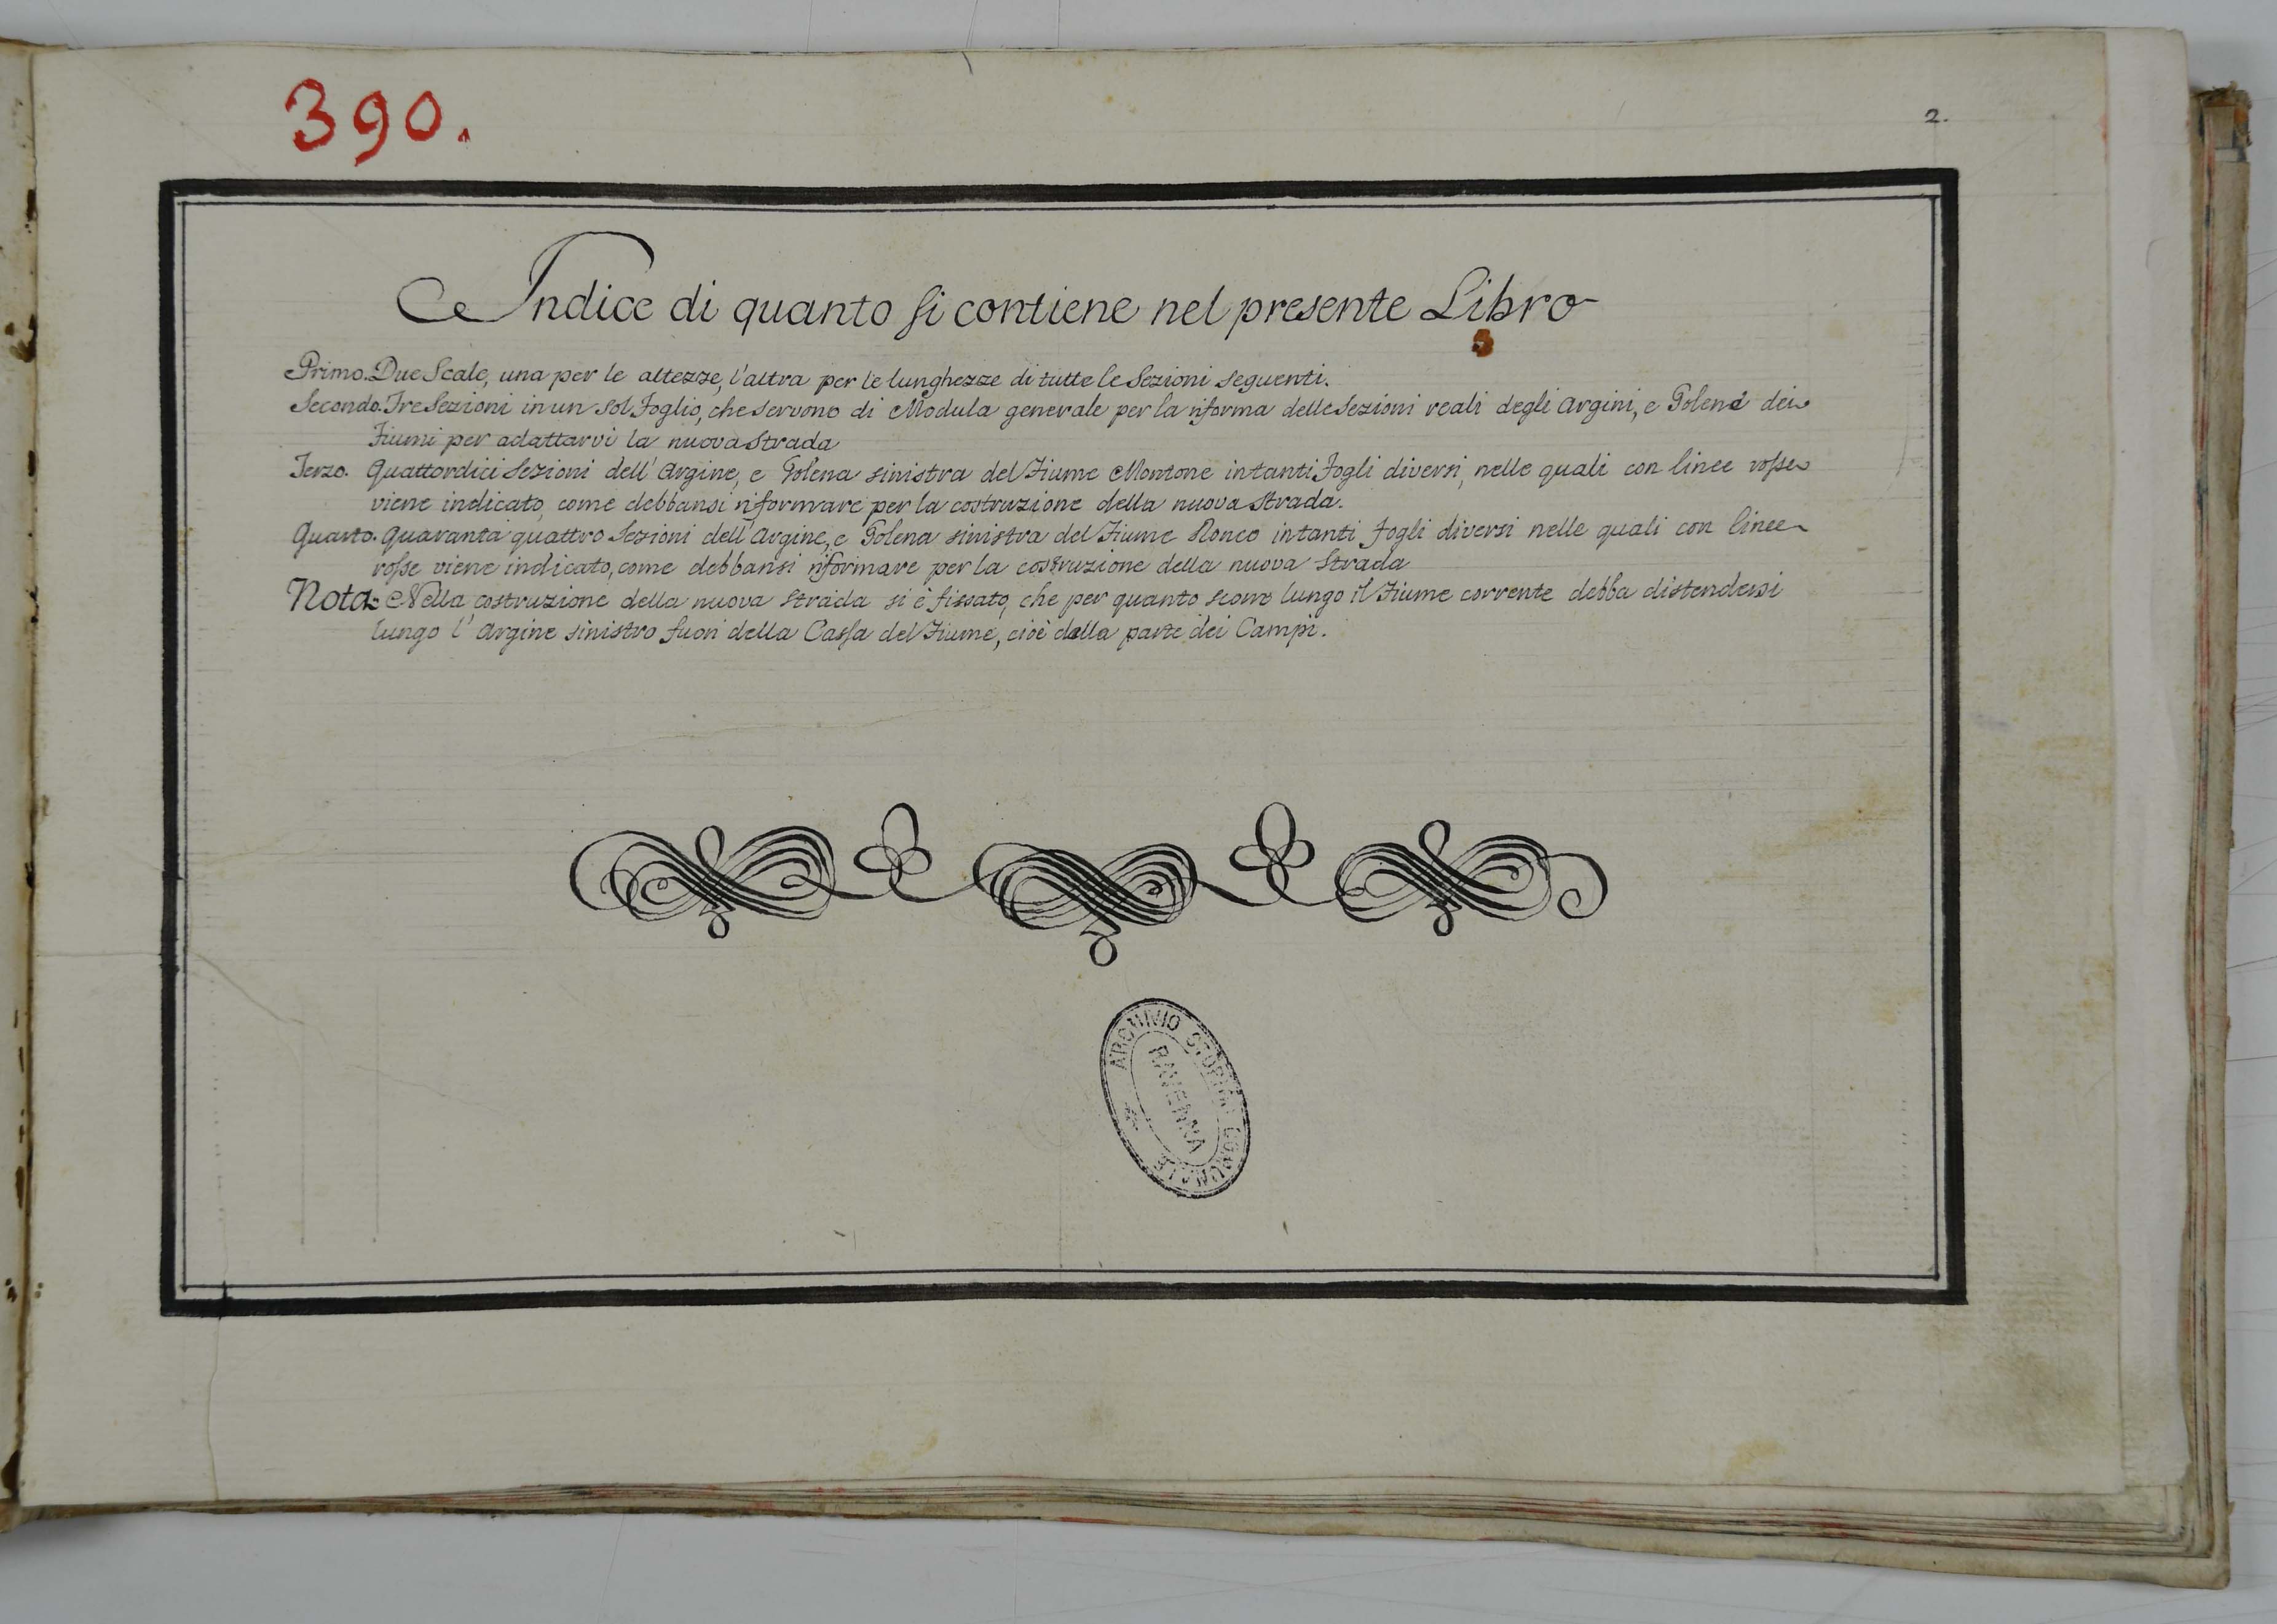 390.
2.
Indice di quanto si contiene nel presente Libro
Primo. Due Scale, una per le altezze, l'altra per le lunghezze di tutte le Sezioni seguenti.
Secondo. Tre Sezioni in un sol Foglio, che servono di Modula generale per la riforma delle Sezioni reali degli Argini, e Golene dei
Fiumi per adattarvi la nuova Strada
Terzo. Quattordici Sezioni dell' Argine, e Golena sinistra del Fiume Montone in tanti Fogli diversi, nelle quali con linee rosse
viene indicato, come debbansi riformare per la costruzione della nuova Strada.
Quarto. Quaranta quattro Sezioni dell' Argine, e Golena sinistra del Fiume Ronco in tanti Fogli diversi nelle quali con linee
rosse viene indicato, come debbansi riformare per la costruzione della nuova Strada
Nota: Nella costruzione della nuova Strada si è fissato, che per quanto scorre lungo il Fiume corrente debba distendersi
lungo l' Argine sinistro fuori della Cassa del Fiume, cioè dalla parte dei Campi.
ARCHIVIO STORICO COMUNALE
RAVENNA